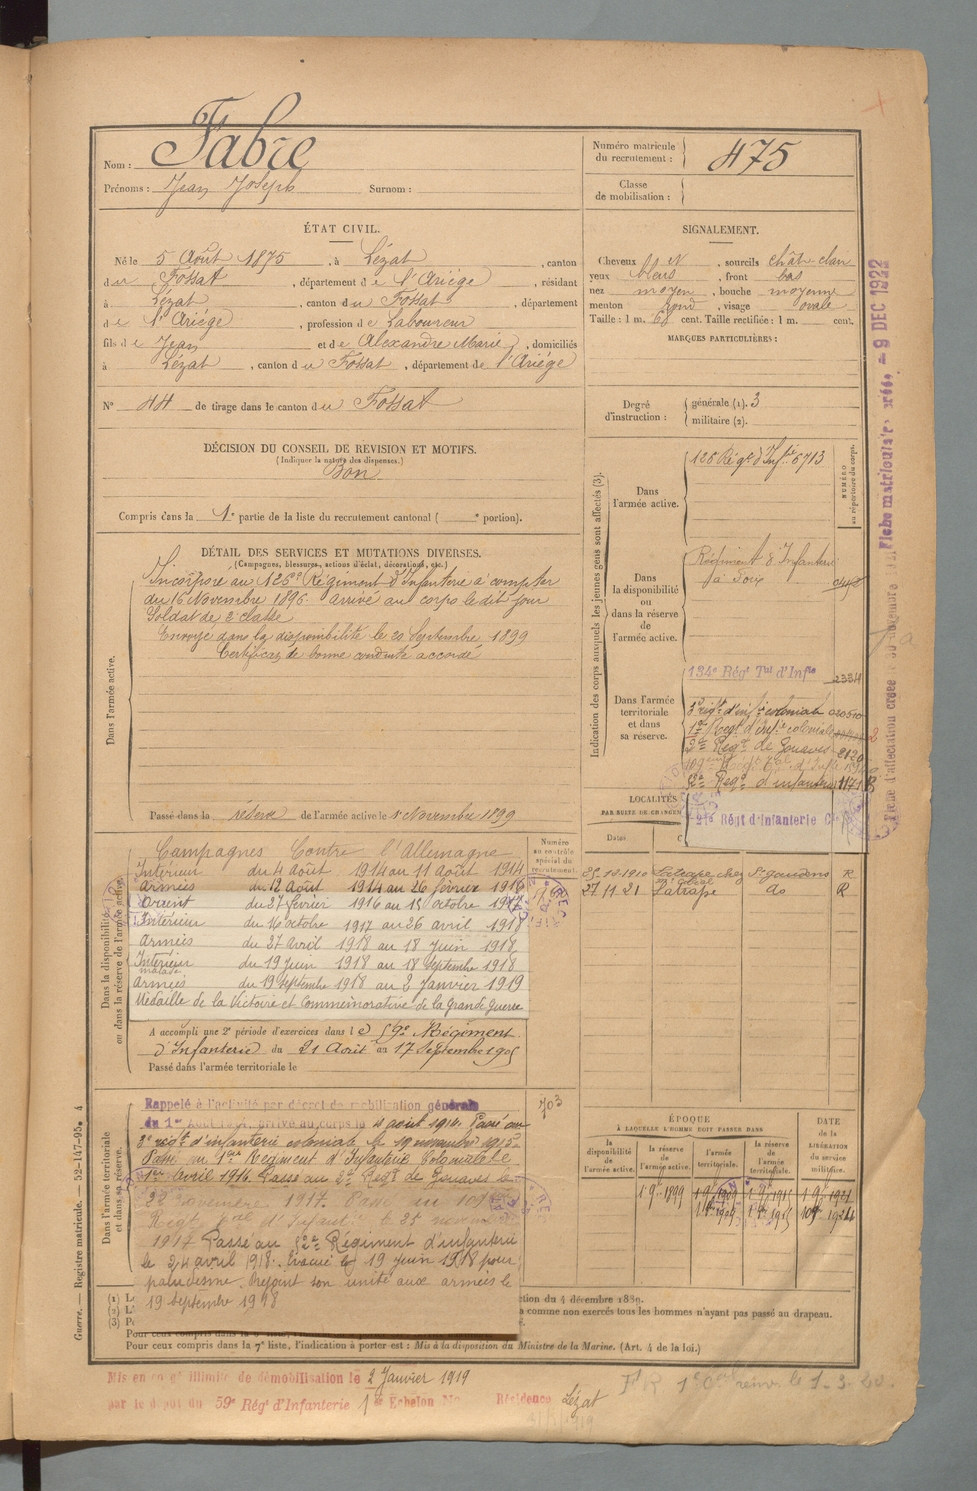 Nom : Fabre
Prénoms : Jean Joseph Surnom :
Numéro matricule du recrutement : 475
Classe de mobilisation :
ÉTAT CIVIL.
Né le 5 Août 1875, à Lézat, canton
du Fossat, département de l'Ariége, résidant
à Lézat, canton du Fossat, département
de l'Ariége, profession de Laboureur
fils de Jean et de Alexandre Marie, domiciliés
à Lézat, canton du Fossat, département de l'Ariége
N° 44 de tirage dans le canton du Fossat
SIGNALEMENT.
Cheveux N, sourcils chât-clair
yeux bleus, front bas
nez moyen, bouche moyenne
menton rond, visage ovale
Taille : 1 m. 68 cent. Taille rectifiée : 1 m. cent.
MARQUES PARTICULIÈRES :
Degré d'instruction : générale (1). 3
militaire (2).
DÉCISION DU CONSEIL DE REVISION ET MOTIFS.
(Indiquer la nature des dispenses.)
Bon
Compris dans la 1e partie de la liste du recrutement cantonal ( e portion).
DÉTAIL DES SERVICES ET MUTATIONS DIVERSES.
(Campagnes, blessures, actions d'éclat, décorations, etc.)
Dans l'armée active.
Incorporé au 126e Régiment d'Infanterie à compter
du 16 Novembre 1896. arrivé au corps le dit jour
Soldat de 2e classe
Envoyé dans la disponibilité le 20 Septembre 1899
Certificat de bonne conduite accordé
Passé dans la réserve de l'armée active le 1er Novembre 1899
Indication des corps auxquels les jeunes gens sont affectés (3).
NUMÉRO au répertoire du corps.
Dans l'armée active.
126 Régt d'Infie 6713
Dans la disponibilité ou dans la réserve de l'armée active.
Régiment d'Infanterie
à Foix
Dans l'armée territoriale et dans sa réserve.
134e Régt Tal d'Infie 2334
3e régt d'infie coloniale 020510
1er Regt d'infie coloniale
2e Regt de Zouaves 2120
52e Regt d'infanterie 1171
21e Régt d'Infanterie Cle
LOCALITÉS
PAR SUITE DE CHANGEM
Dates
25.10.1910 chez St gaudens R
27.11.21 Latrape do R
Dans la disponibilité ou dans la réserve de l'armée active.
Numéro au contrôle spécial du recrutement.
Campagnes Contre l'Allemagne
Intérieur du 4 août 1914 au 11 août 1914
Armées du 12 Août 1914 au 26 février 1916
Orient du 27 février 1916 au 15 octobre 1917
Intérieur du 16 octobre 1917 au 26 avril 1918
Armées du 27 Avril 1918 au 18 juin 1918
Intérieur malade du 19 Juin 1918 au 18 Septembre 1918
Armées du 19 Septembre 1918 au 2 Janvier 1919
Médaille de la Victoire et Commémorative de la Grande Guerre
A accompli une 2e période d'exercices dans le 59e Régiment
d'Infanterie du 21 Août au 17 Septembre 1905
Passé dans l'armée territoriale le
Dans l'armée territoriale et dans sa réserve.
703
Rappelé à l'activité par décret de mobilisation générale
du 1er Août 1914. arrivé au corps le 4 août 1914. Passé au
3e régt d'infanterie coloniale le 19 novembre 1915.
Passé au 1er Regiment d'Infanterie Coloniale le
1er avril 1916. Passé au 2e Regt de Zouaves le
1917. Passé au
Regt d'Infanterie le 25 novembre
1917 Passé au 52e Régiment d'infanterie
le 24 avril 1918. Evacué le 19 juin 1918 pour
paludisme. Rejoint son unité aux armées le
19 septembre 1918
ÉPOQUE
À LAQUELLE L'HOMME DOIT PASSER DANS
la disponibilité de l'armée active.
la réserve de l'armée active.
l'armée territoriale.
la réserve de l'armée territoriale.
DATE de la LIBÉRATION du service militaire.
1-9bre 1899
(1) L
(2) L'
(3) P
ction du 4 décembre 1889.
a comme non exercés tous les hommes n'ayant pas passé au drapeau.
Pour ceux compris dans la 7e liste, l'indication à porter est : Mis à la disposition du Ministre de la Marine. (Art. 4 de la loi.)
Guerre. — Registre matricule. — 52-147-95. 4
Mis en congé illimité de démobilisation le 2 Janvier 1919
par le dépôt du 59e Régt d'Infanterie 1er Échelon No Résidence Lézat
renv. le 1-3-20.
Fiche matriculaire créée, - 9 DEC 1922